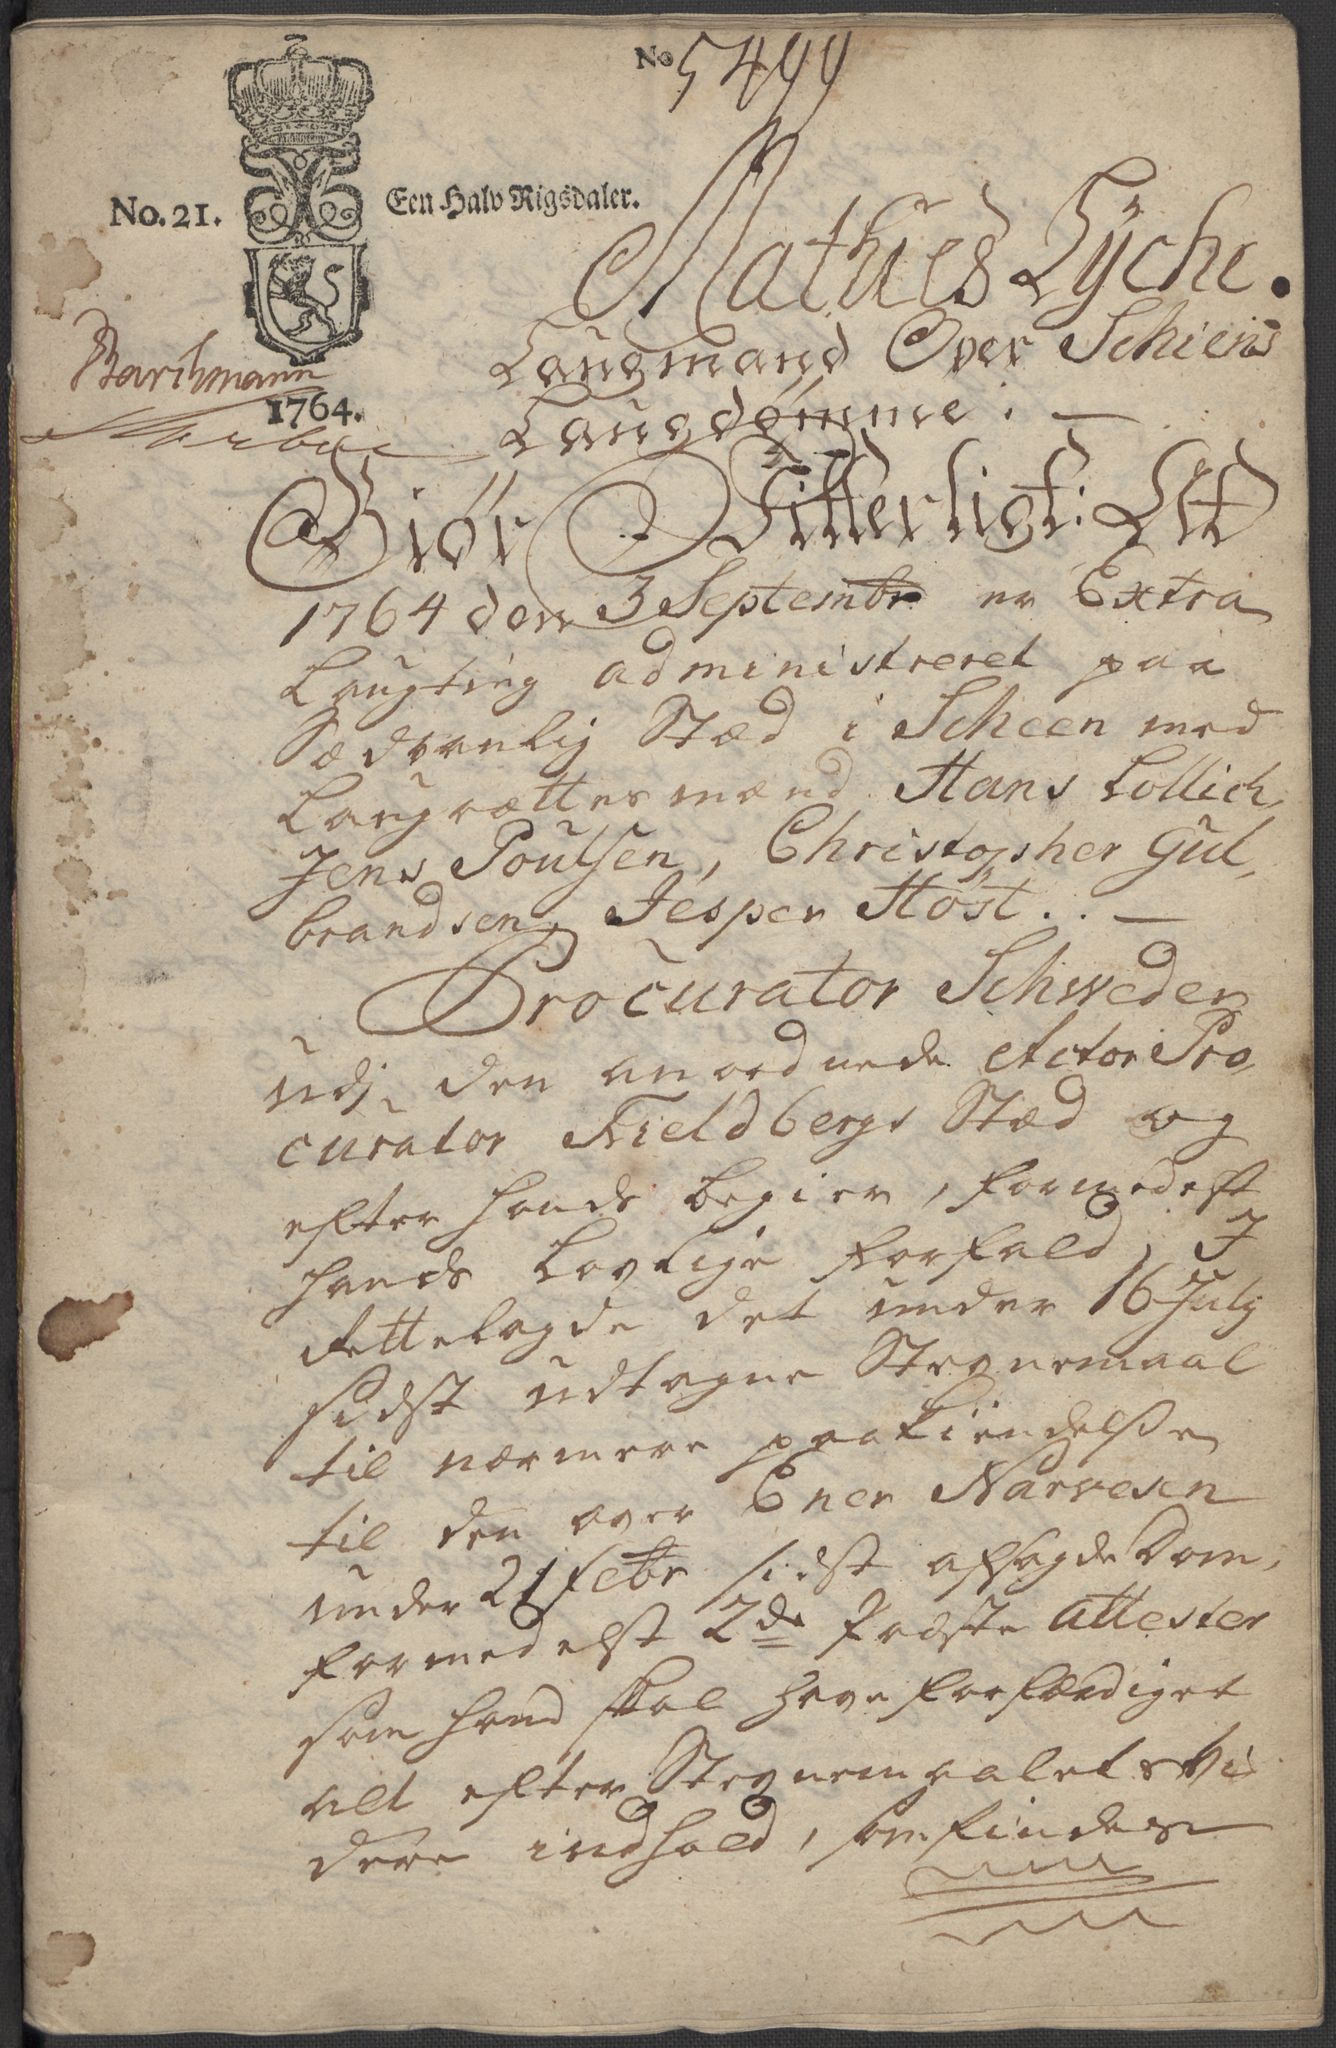 No 5499
No. 21.
Een Halv Rigsdaler.
Barthmann
1764.
Mathies Lÿche.
Laugmand Over Schiens
Laugdømme: —
Giør Vitterligt: At
1764 den 3 Septembr er Extra
Laugting administreret paa
Sædvanlig Stæd i Scheen med
Laugrættesmænd Hans Lollich,
Jens Poulsen, Christopher Gul,
brandsen, Jesper Høst . . —
Procurator Schweder
udj den anordnede Actor Pro,
curator Fieldbergs Stæd og
efter hands begier, formedelst
hands Lovlige forfald, J
rettelagde det under 16 July
sidst udtagne Stevnemaal
til nærmere paakiendelse
til den over Ener Narvesen
under 21 febr sidst afsagde Dom,
formedelst 2de falske attester
som hand skal have forfærdiget
alt efter Stevnemaalets vi
dere indhold, som findes